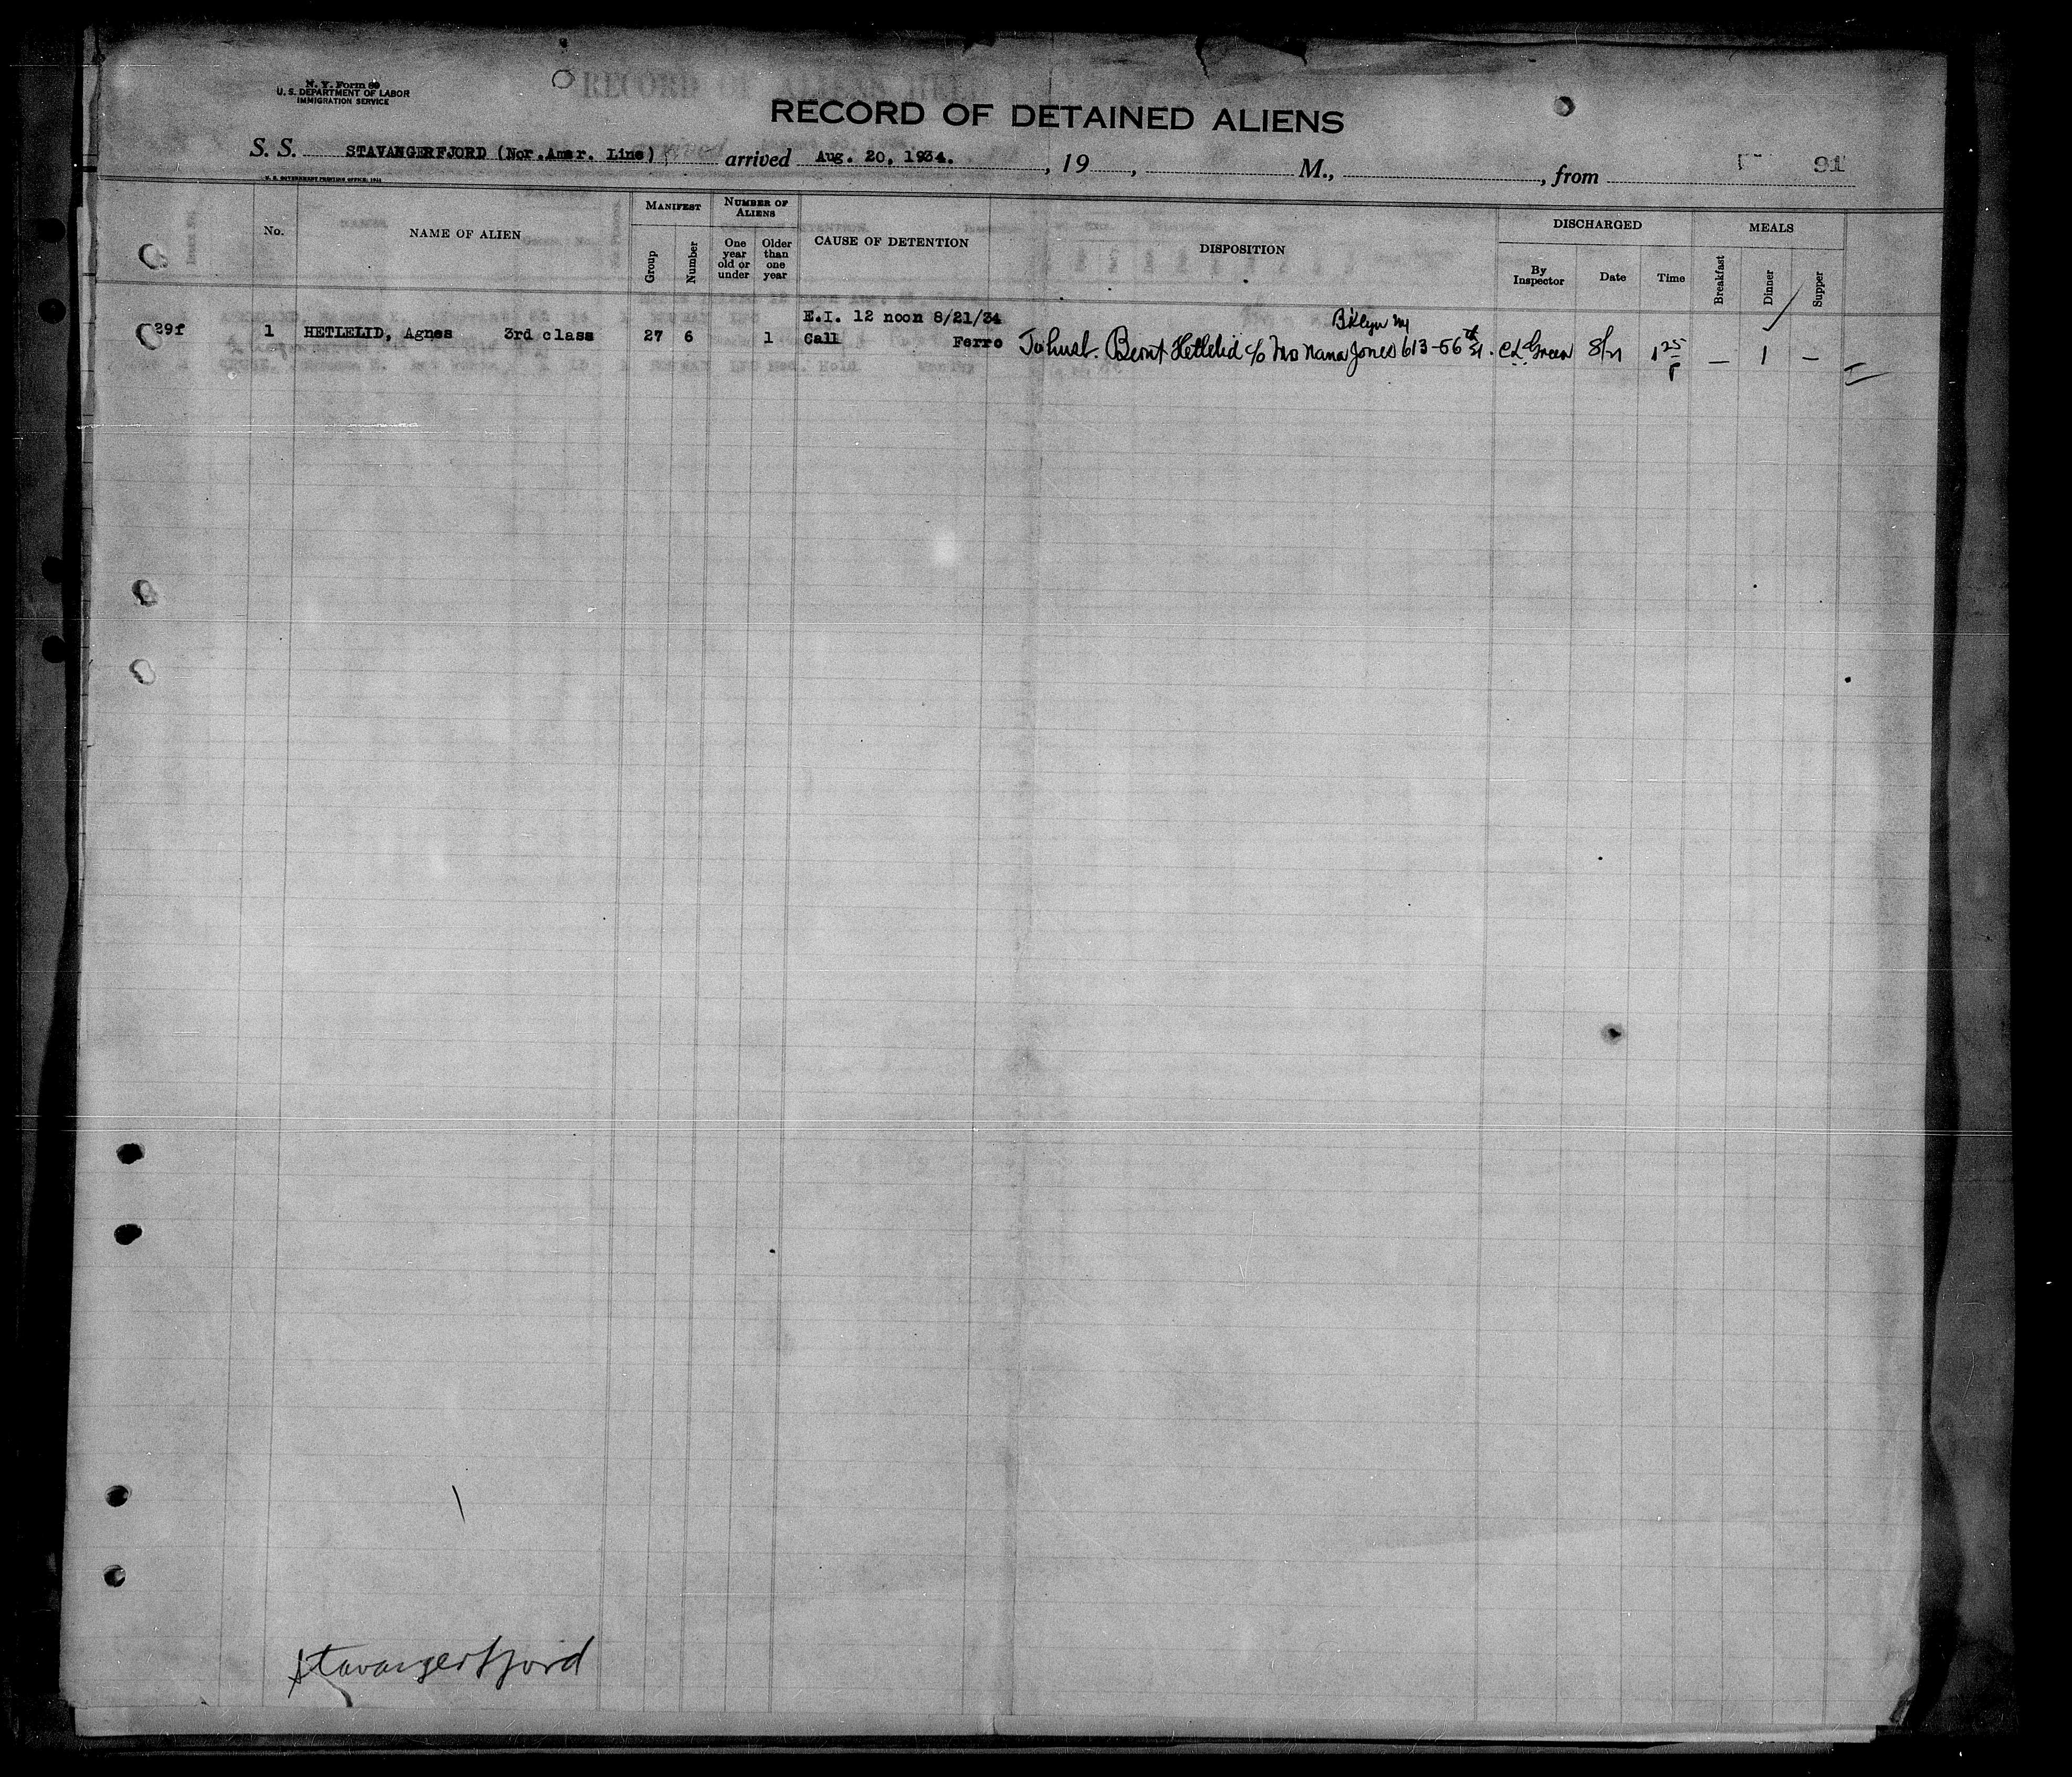 N. Y. Form 89
U. S. DEPARTMENT OF LABOR
IMMIGRATION SERVICE
RECORD OF DETAINED ALIENS
S. S. STAVANGERFJORD (Nor.Amer. Line) arrived Aug. 20, 1934. , 19 , M., , from 91
U. S. GOVERNMENT PRINTING OFFICE
No.
NAME OF ALIEN
MANIFEST
Group
Number
NUMBER OF ALIENS
One year old or under
Older than one year
CAUSE OF DETENTION
DISPOSITION
DISCHARGED
By Inspector
Date
Time
MEALS
Breakfast
Dinner
Supper
E.I. 12 noon 8/21/34
B'klyn NY
29f 1 HETLELID, Agnes 3rd class 27 6 1 Call Ferro To husb. Bernt Hetlelid c/o Mrs Nana Jones 613-56th St. CL Green 8/21 1 25 P — 1 —
Stavangerfjord